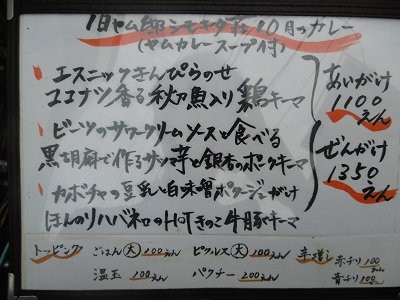 旧ヤム邸シモキタ荘 10月のカレー
(ヤムカレースープ付)
エスニックきんぴらのせ
ココナツ香る秋刀魚入り鶏キーマ
ビーツのサワークリームソースと食べる
黒胡麻で作るサツ芋と銀杏のポークキーマ
カボチャの豆乳と白味噌ポタージュがけ
ほんのりハバネロのHOTきのこ牛豚キーマ
あいがけ
1100
えん
ぜんがけ
1350
えん
トッピング ごはん大 100えん ピクルス大 100えん 辛増し 赤チリ 100えん
温玉 100えん パクチー 200えん 青チリ 100えん